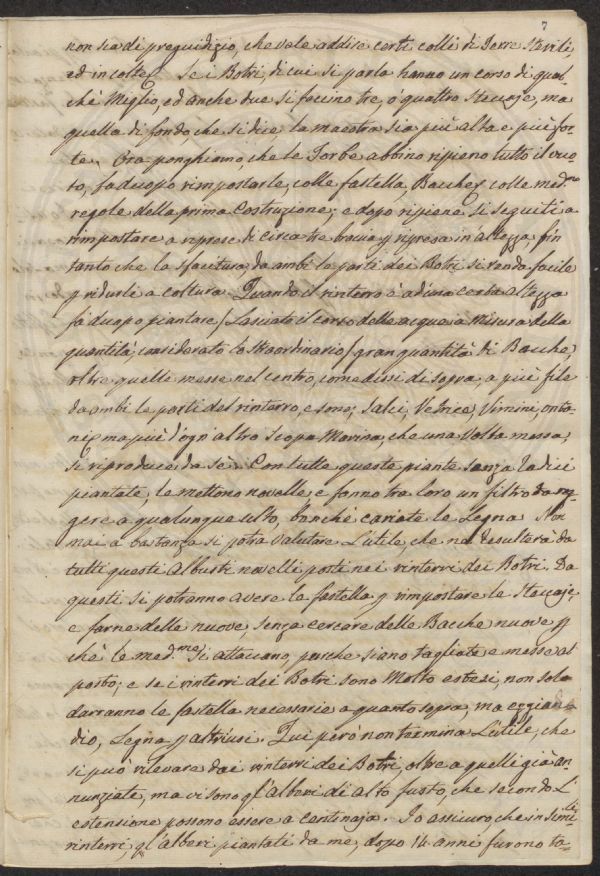 7
non sia di pregiudizio, che vale addire certi colli di Terre sterili,
ed incolte. Se i Botri, di cui si parla hanno un corso di qual-
chè Miglio, ed anche due si facino tre, o' quattro Steccaje, ma
quella di fondo, che si dice la maestra sia più alta e più for-
te. Ora ponghiamo, che le Torbe abbino ripieno tutto il vuo-
to, fa duopo rimpostarle, colle fastella, Bacche, colle med.me
regole della prima Costruzione; e dopo ripiene si seguiti a
rimpostare a riprese di circa tre bracia p ripresa in altezza, fin
tanto che la sfacitura da ambi le parti dei Botri si renda facile
p ridurli a coltura. Quando il rinterro è ad una certa altezza
fa duopo piantare / Lasciato il corso delle acque a Misura della
quantità, considerato lo straordinario / gran quantità di Bacche,
oltre quelle messe nel centro, come dissi di sopra, a più file
da ambi le parti del rinterro, e sono; Salci, Vetrice, Vimini, onta-
ni, ma più d'ogn'altro Scopa Marina, che una volta messa,
si riproduce da sè. Con tutte queste piante senza radici
piantate, le mettono novelle, e fanno tra loro un filtro da reg-
gere a qualunque urto, benchè cariate le Legna. Non
mai a bastanza si potrà valutare l'utile, che ne resulterà da
tutti questi Albusti novelli posti nei rinterri dei Botri. Da
questi si potranno avere le fastella p rimpostare le Steccaje,
e farne delle nuove, senza cercare delle Bacche nuove p
chè le med.me si attaccano, purche siano tagliate e messe al
posto; e se i rinterri dei Botri sono Molto estesi, non solo
daranno le fastella necessarie a quanto sopra, ma eggian-
dio, Legna p altri usi. Qui però non termina l'utile, che
si può rilevare dai rinterri dei Botri, oltre a quelli già an-
nunziate, ma vi sono gl'Alberi di alto fusto, che secondo l'
estensione possono essere a centinaja. Io assicuro che in simili
rinterri, gl'alberi piantati da me, dopo 14 anni furono ta-